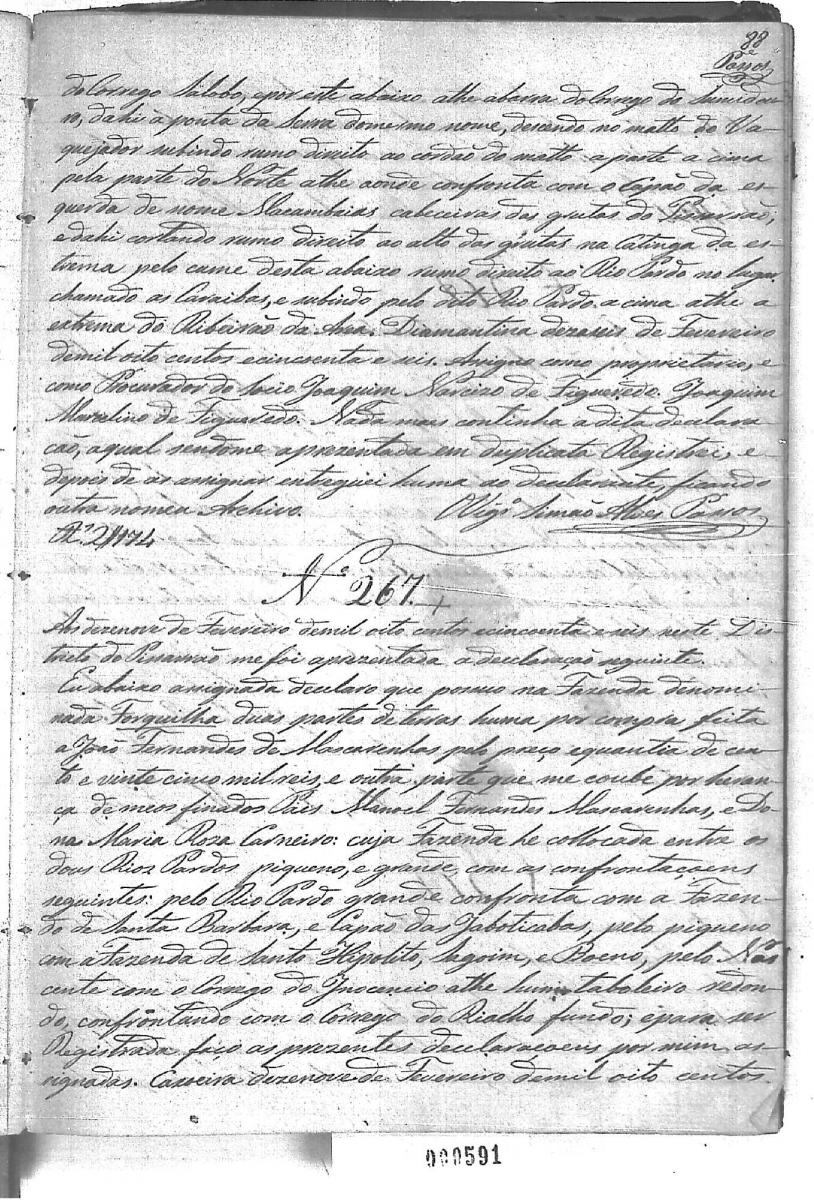 88
Passos
do Corrego Salobo, e por este abaixo athe abarra do Corrego do Sumidou-
ro, dahi à ponta da Serra domesmo nome, descendo no matto do Va-
quejador subindo rumo direito ao cordão do matto a parte a cima
pela parte do Norte athe aonde confronta com o Capão da es-
querda de nome Macambeias cabeceiras das grutas do Pissarrão;
e dahi cortando rumo direito ao alto das grutas na Catinga da es-
trema pelo cume desta abaixo rumo direito ao Rio Pardo no lugar
chamado as Caraibas, e subindo pelo dito Rio Pardo a cima athe a
estrema do Ribeirão da Area. Diamantina dezaseis de Fevereiro
demil oito centos ecincoenta e seis. Assigno como proprietario, e
como Procurador do socio Joaquim Narcizo de Figueredo. Joaquim
Marcelino de Figueredo. Nada mais continha adita declara-
cão, aqual sendome aprezentada em duplicata Registrei, e
depois de as assignar entreguei huma ao declarante, ficando
outra nomeu Archivo. OVigr.º Simão Alves Passos
R.s 2$174
N.º 267.
As dezenove de Fevereiro demil oito centos ecincoenta e seis neste Dis-
treto do Pissarrão me foi aprezentada a declaração seguinte.
Eu abaixo assignada declaro que possuo na Fazenda denomi-
nada Forquilha duas partes de terras huma por compra feita
a João Fernandes de Mascarenhas pelo preço equantia de cen-
to e vinte cinco mil reis, e outra parte que me coube por heran-
ça de meos finados Pais Manoel Fernandes Mascarenhas, e Do-
na Maria Roza Carneiro: cuja Fazenda he collocada entra os
dous Rios Pardos piqueno, e grande, com as confrontaçoens
seguintes: pelo Rio Pardo grande confronta com a Fazen-
da de Santa Barbara, e Capão das Jaboticabas, pelo piqueno
com a Fazenda de Santo Hipolito, Lagoim, e Boeno, pelo Nas
cente com o Corrego do Inocencio athe hum taboleiro redon-
do, confrontando com o Corrego do Rialho fundo; epara ser
Registrada faço as prezentes declaraçoens por mim as-
signadas. Caxoeira dezenove de Fevereiro demil oito centos
000591